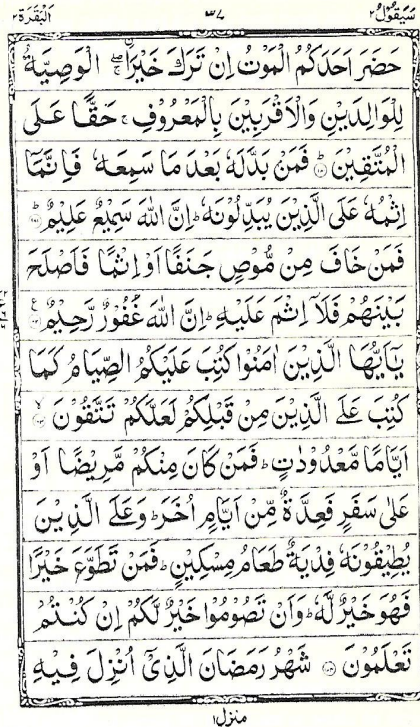 سَيَقُوْلُ ٢ ٣٧ اَلْبَقَرَة ٢
حَضَرَ اَحَدَكُمُ الْمَوْتُ اِنْ تَرَكَ خَيْرَاۨ ۖۚ الْوَصِيَّةُ
لِلْوَالِدَيْنِ وَالْاَقْرَبِيْنَ بِالْمَعْرُوْفِ ۚ حَقًّا عَلَى
الْمُتَّقِيْنَ ؕ فَمَنْۢ بَدَّلَهٗ بَعْدَ مَا سَمِعَهٗ فَاِنَّمَاۤ
اِثْمُهٗ عَلَى الَّذِيْنَ يُبَدِّلُوْنَهٗ ؕ اِنَّ اللّٰهَ سَمِيْعٌ عَلِيْمٌ ؕ
فَمَنْ خَافَ مِنْ مُّوْصٍ جَنَفًا اَوْ اِثْمًا فَاَصْلَحَ
بَيْنَهُمْ فَلَاۤ اِثْمَ عَلَيْهِ ؕ اِنَّ اللّٰهَ غَفُوْرٌ رَّحِيْمٌ ع
يٰۤاَيُّهَا الَّذِيْنَ اٰمَنُوْا كُتِبَ عَلَيْكُمُ الصِّيَامُ كَمَا
كُتِبَ عَلَى الَّذِيْنَ مِنْ قَبْلِكُمْ لَعَلَّكُمْ تَتَّقُوْنَ ۙ
اَيَّامًا مَّعْدُوْدٰتٍ ؕ فَمَنْ كَانَ مِنْكُمْ مَّرِيْضًا اَوْ
عَلٰى سَفَرٍ فَعِدَّةٌ مِّنْ اَيَّامٍ اُخَرَ ؕ وَعَلَى الَّذِيْنَ
يُطِيْقُوْنَهٗ فِدْيَةٌ طَعَامُ مِسْكِيْنٍ ؕ فَمَنْ تَطَوَّعَ خَيْرًا
فَهُوَ خَيْرٌ لَّهٗ ؕ وَاَنْ تَصُوْمُوْا خَيْرٌ لَّكُمْ اِنْ كُنْتُمْ
تَعْلَمُوْنَ شَهْرُ رَمَضَانَ الَّذِيْۤ اُنْزِلَ فِيْهِ
منزل ١